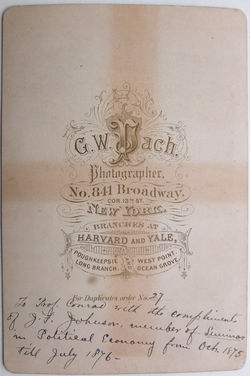 G.W. Pach.
Photographer,
No. 841 Broadway.
COR. 13TH ST.
NEW YORK.
BRANCHES AT
HARVARD AND YALE,
POUGHKEEPSIE WEST POINT
LONG BRANCH. OCEAN GROVE.
For Duplicates order No. 27
To Prof. Conrad with the compliments
of J. F. Johnson, member of Seminar
in Political Economy from Oct. 1875
till July 1876 -